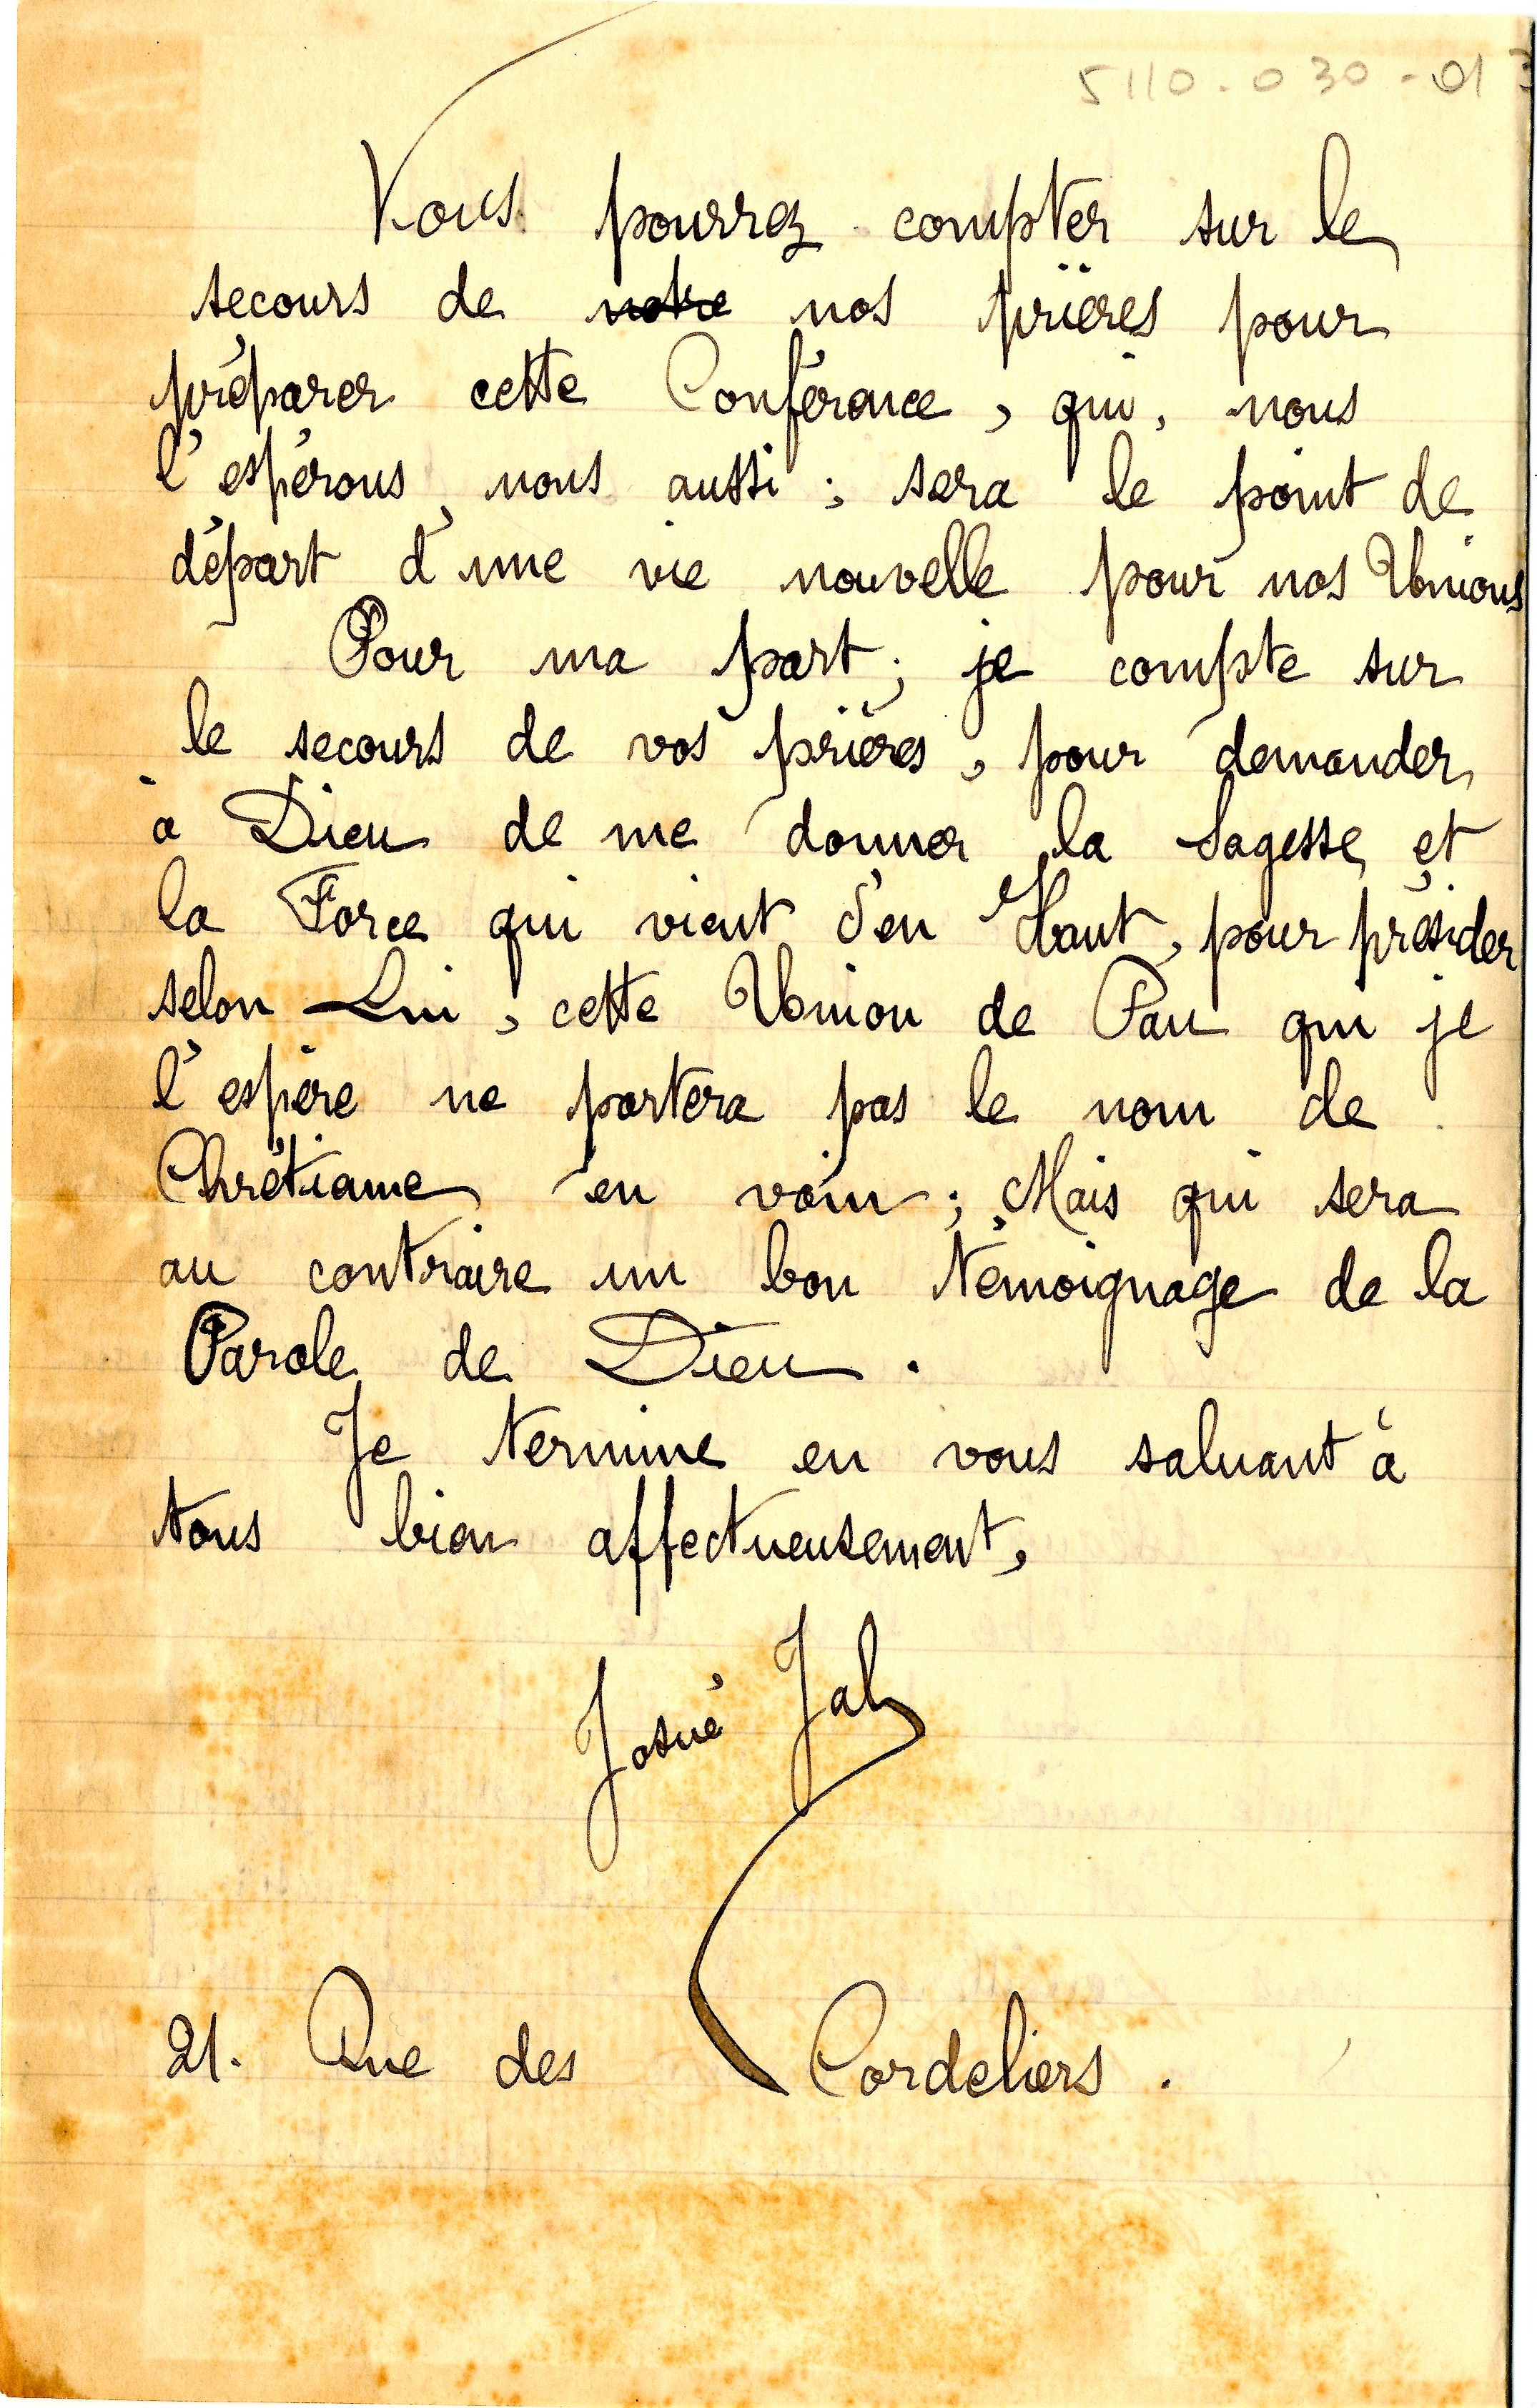 5110.030-01
Vous pourrez compter sur le
secours de notre nos prières pour
préparer cette Conférence, qui, nous
l'espérons, nous aussi ; sera le point de
départ d'une vie nouvelle pour nos Unions
Pour ma part ; je compte sur
le secours de vos prières, pour demander
à Dieu de me donner la Sagesse, et
la Force qui vient d'en Haut, pour présider
selon Lui, cette Union de Pau qui je
l'espère ne portera pas le nom de
Chrétienne en vain ; Mais qui sera
au contraire un bon témoignage de la
Parole de Dieu.
Je termine en vous saluant à
tous bien affectueusement,
Josué Jal
21. Rue des Cordeliers.